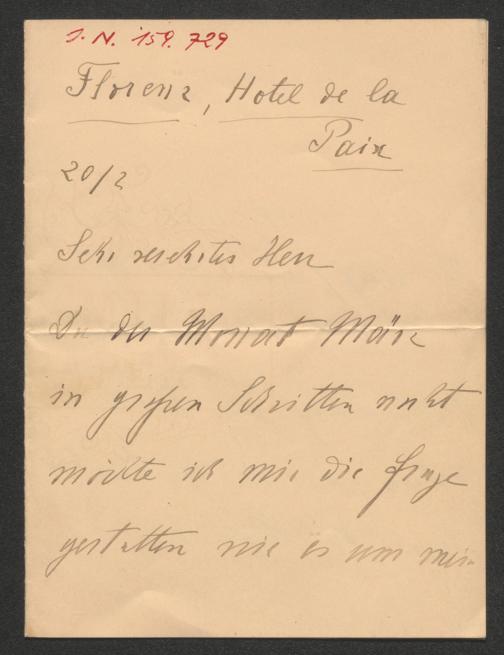 J. N. 159.729
Florenz, Hotel de la
Paix
20/2
Sehr verehrter Herr
Da der Monat März
in großen Schritten naht
möchte ich mir die Frage
gestatten wie es um mein